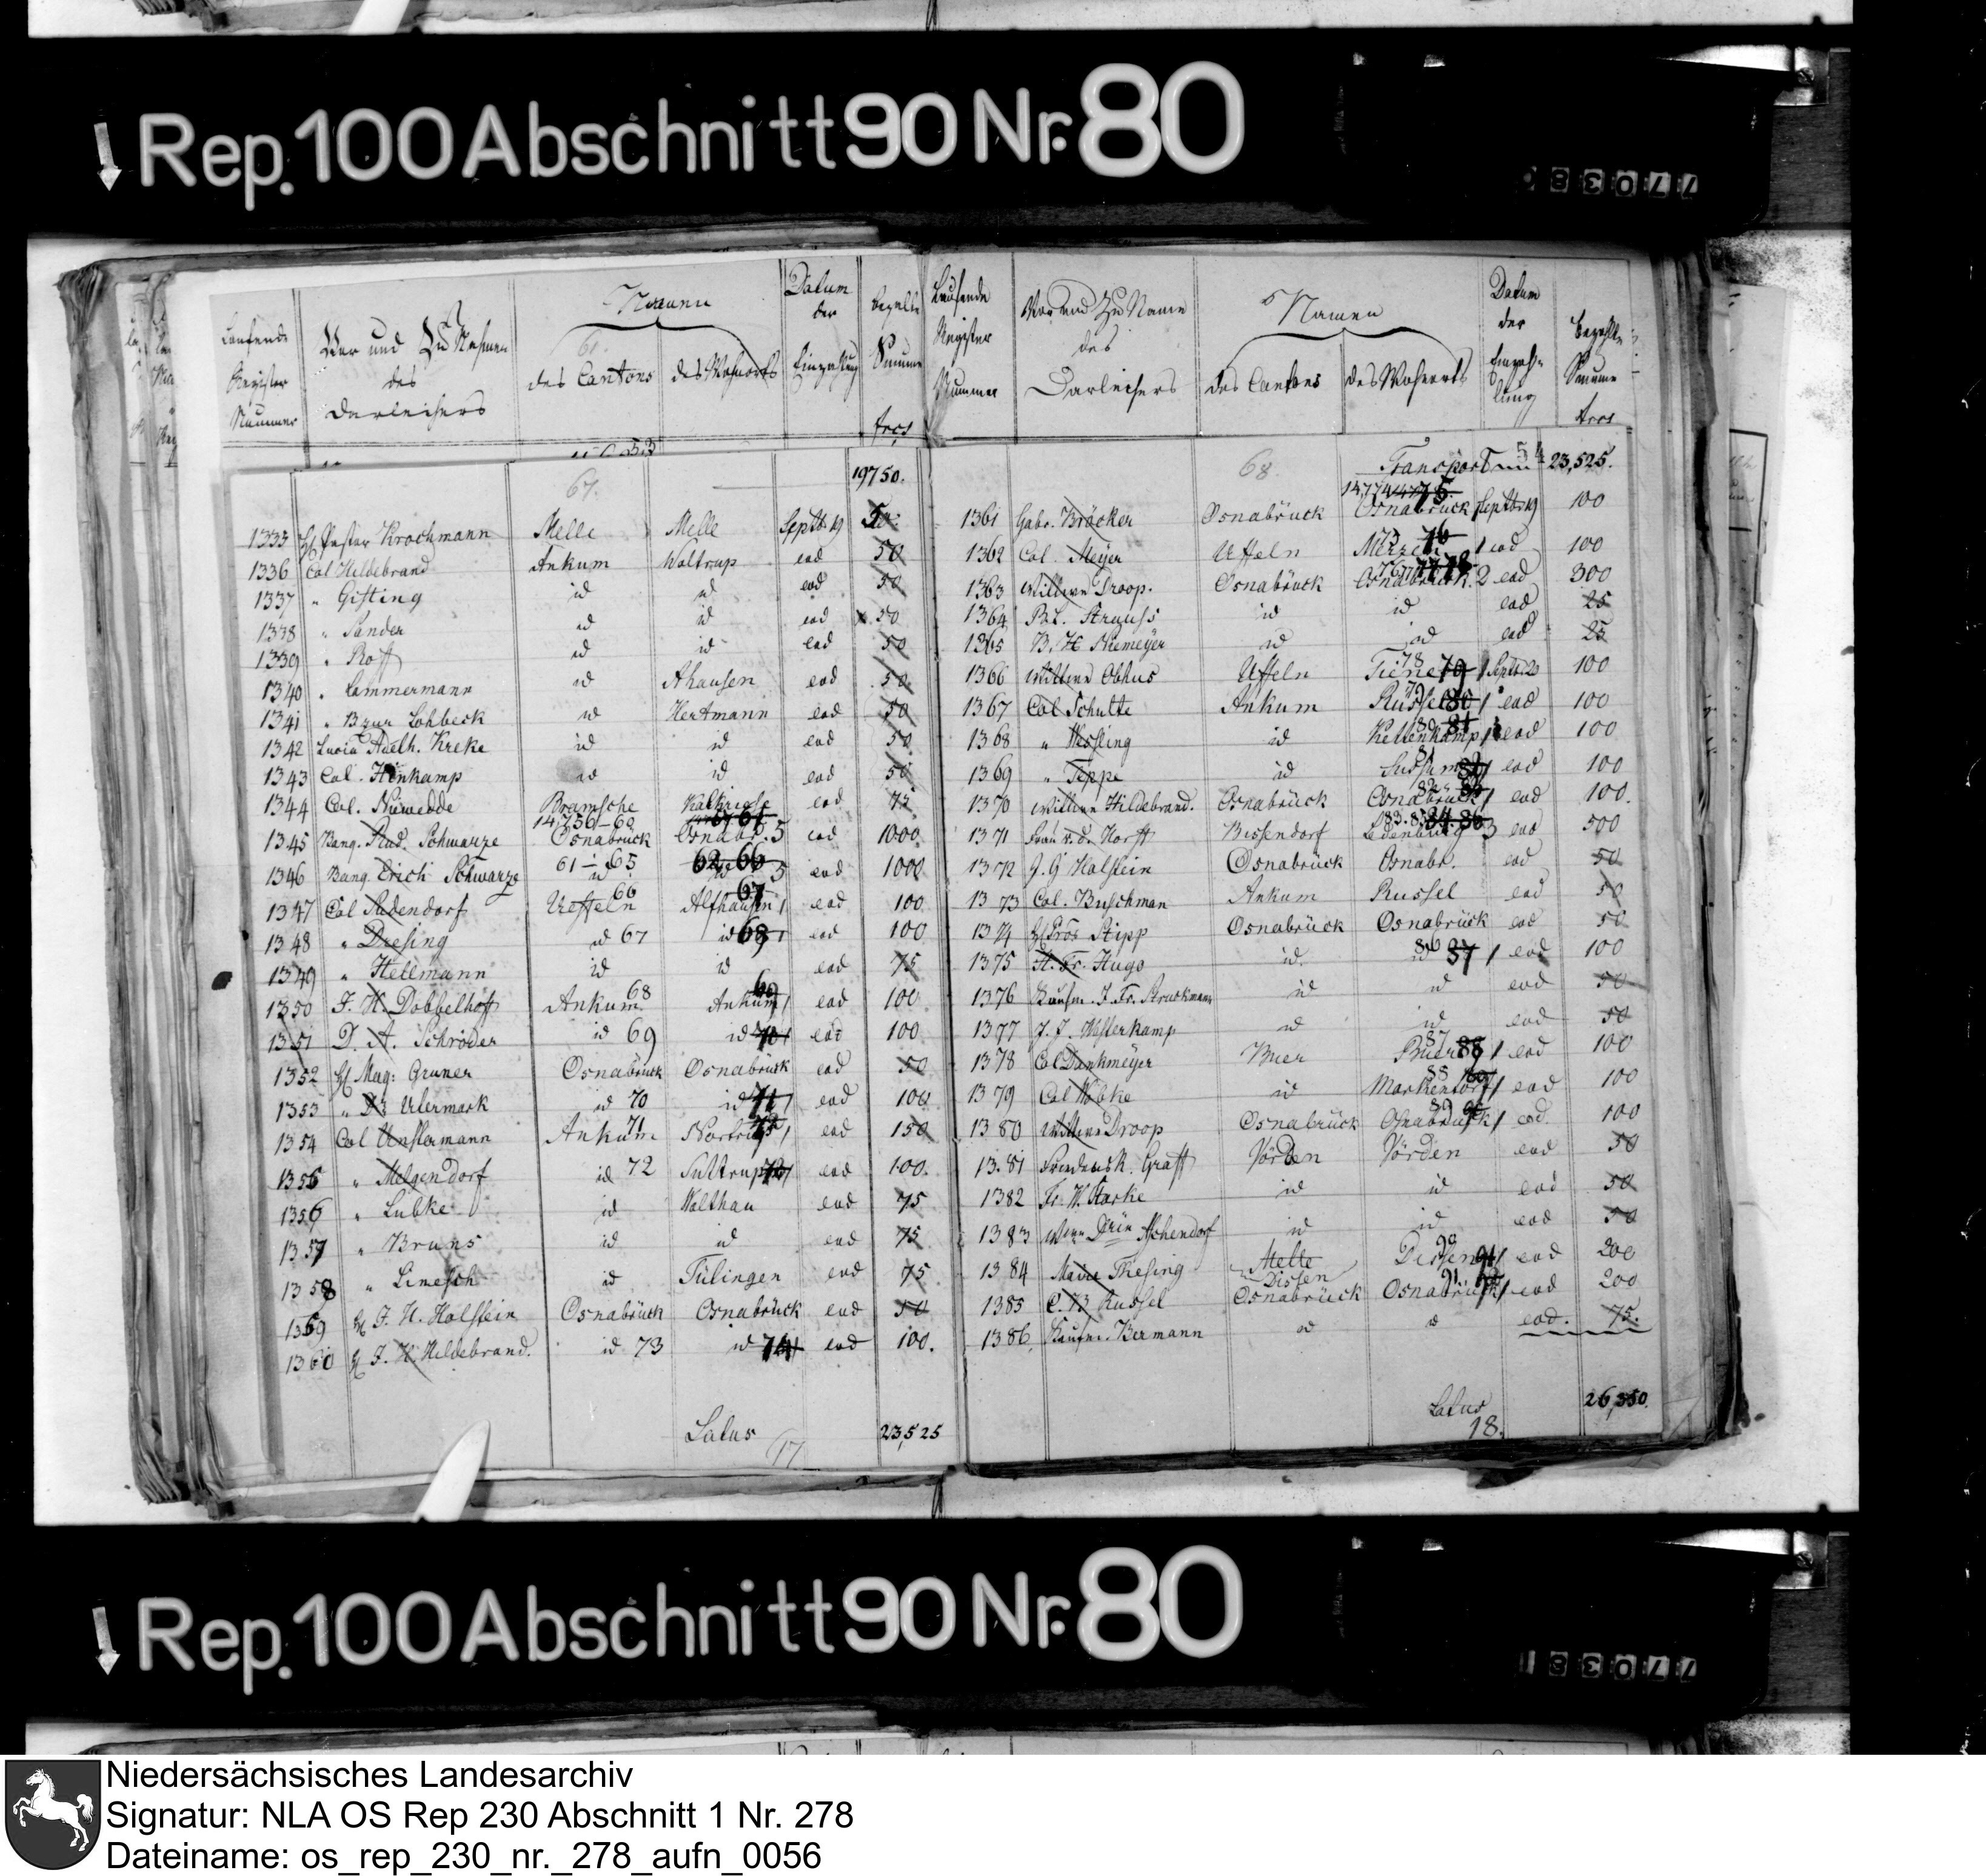 Rep. 100 Abschnitt 90 Nr. 80
77038
Laufende Register Nummer
Vor und Zu Nahmen des Darleihers
Namen
des Cantons
des Wohnorts
Datum der Einzahlung
bezahlte Summe
frcs
67.
19750.
1335 Pastor Krochmann Melle Melle Septb. 19 50
1336 Col Hildebrand Ankum Woltrup eod 50
1337 " Gisting id id eod 50
1338 " Sander id id eod 50
1339 " Rott id id eod 50
1340 " Lammermann id Ahausen eod 50
1341 " Bzur Lohbeck id Hertmann eod 50
1342 Lucia Adelh. Kreke id id eod 50
1343 Col. Henkamp id id eod 50
1344 Col. Niewedde Bramsche Kalkriese eod 75
14,756-60 61
1345 Bang. Rud. Schwarze Osnabrück Osnabr. 5 eod 1000
61-65 62 66
1346 Bang. Erich Schwarze id id 5 eod 1000
66 67
1347 Col Sudendorf Ueffeln Alfhausen 1 eod 100
1348 " Dresing id 67 id 68 1 eod 100
1349 " Hellmann id id eod 75
1350 J. H. Dobbelhoff Ankum 68 Ankum 69 1 eod 100
1351 D. A. Schröder id 69 id 70 1 eod 100
1352 Mag: Gruner Osnabrück Osnabrück eod 50
1353 " Dr Ulermark id 70 id 71 1 eod 100
1354 Col Unstermann Ankum 71 Nortrup 1 eod 150
1355 " Melgendorf id 72 Suttrup 1 eod 100.
1356 " Lubke id Walthau eod 75
1357 " Bruns id id eod 75
1358 " Limesch id Tülingen eod 75
1359 J. H. Holstein Osnabrück Osnabrück eod 50
1360 J. H. Hildebrand. id 73 id 74 eod 100.
Latus 23,525
17
Laufende Register Nummer
Vor und Zu Name des Darleihers
Namen
des Cantons
des Wohnorts
Datum der Einzahlung
bezahlte Summe
frcs
68.
Transport 23,525.
1361 Gabr. Bröcker Osnabrück Osnabrück Septb 19 100
1362 Col. Meyer Uffeln Merzen 1 eod 100
1363 Wittwe Droop. Osnabrück Osnabrück. 2 eod 300
1364 Struss id id eod 25
1365 B. H. Niemeyer id id eod 25
1366 Wittwe Obhus Uffeln Tiene 79 1 Septb. 20 100
1367 Col Schulte Ankum Rüssel 80 1 eod 100
1368 " Wessling id Kettenkamp 1 eod 100
1369 " Teppe id Sussum 1 eod 100
1370 Wittwe Hildebrand. Osnabrück Osnabrück 1 eod 100.
1371 Frau v. d. Horst Bissendorf Ledenburg 3 eod 500
1372 J. G Holstein Osnabrück Osnabr. eod 50
1373 Col. Buschman Ankum Russel eod 50
1374 Stipp Osnabrück Osnabrück eod 50
1375 H. Fr. Hugo id. id 87 1 eod 100
1376 Kaufm. J. Fr. Struckmann id id eod 50
1377 J. J. Westerkamp id id eod 50
1378 Col Dankmeyer Buer Buer 88 1 eod 100
1379 Col Wobke id Markendorf 1 eod 100
1380 Wittwe Droop Osnabrück Osnabrück 1 eod. 100
1381 Friedrich. Graff Vörden Vörden eod 50
1382 Fr. W. Starke id id eod 50
1383 Aschendorf id id eod 50
1384 Marie Thesing Melle Dissen 1 eod 200
Dissen
1385 C. B Russel Osnabrück Osnabrück 1 eod 200
1386. Kaufm. Bermann id id eod. 75.
Latus 26,350
18.
Rep. 100 Abschnitt 90 Nr. 80
77038
Niedersächsisches Landesarchiv
Signatur: NLA OS Rep 230 Abschnitt 1 Nr. 278
Dateiname: os_rep_230_nr._278_aufn_0056